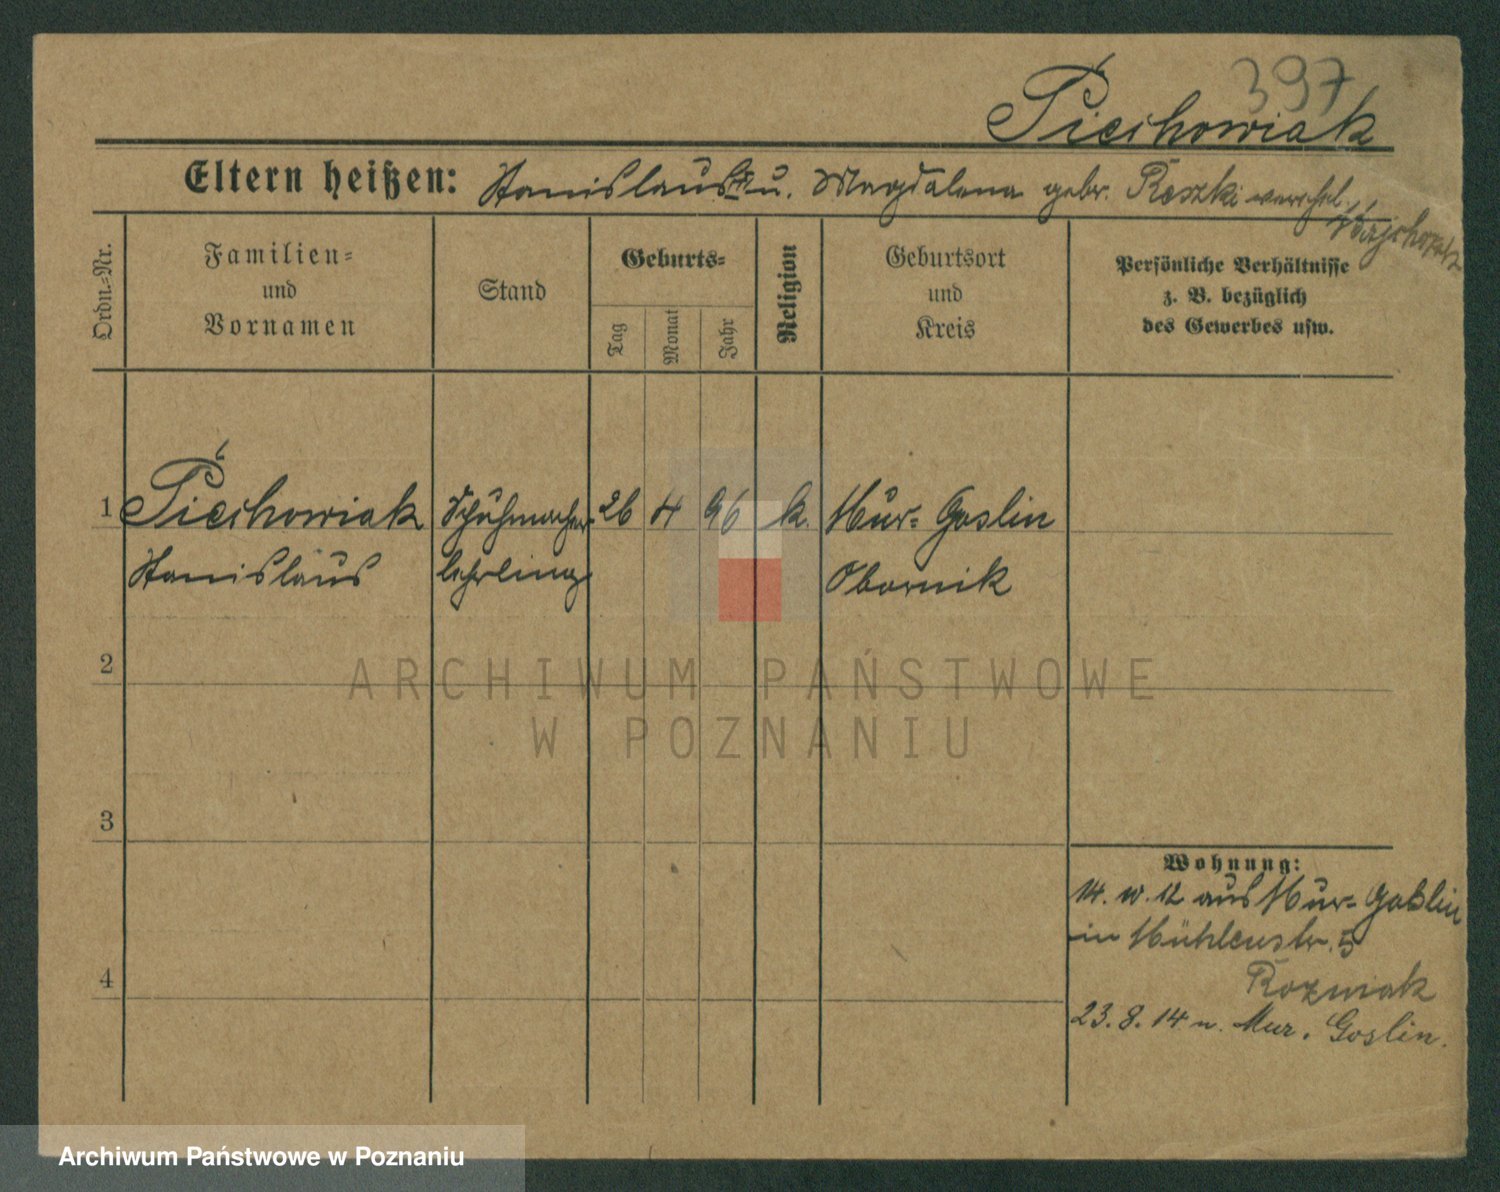 397
Piechowiak
Eltern heißen: Stanislaus u. Magdalena gebr. Reszki
Ordn.=Nr.
Familien=
und
Vornamen
Stand
Geburts=
Tag
Monat
Jahr
Religion
Geburtsort
und
Kreis
Persönliche Verhältnisse
z. B. bezüglich
des Gewerbes usw.
1 Piechowiak Schuhmacher- 26 4 96 k. Mur= Goslin
Stanislaus lehrling Obornik
2
3
4
Wohnung:
14. IV. 12 aus Mur= Goslin
in Mühlenstr. 5
Rozmiak
23. 8. 14 n. Mur. Goslin.
ARCHIWUM PAŃSTWOWE
W POZNANIU
Archiwum Państwowe w Poznaniu